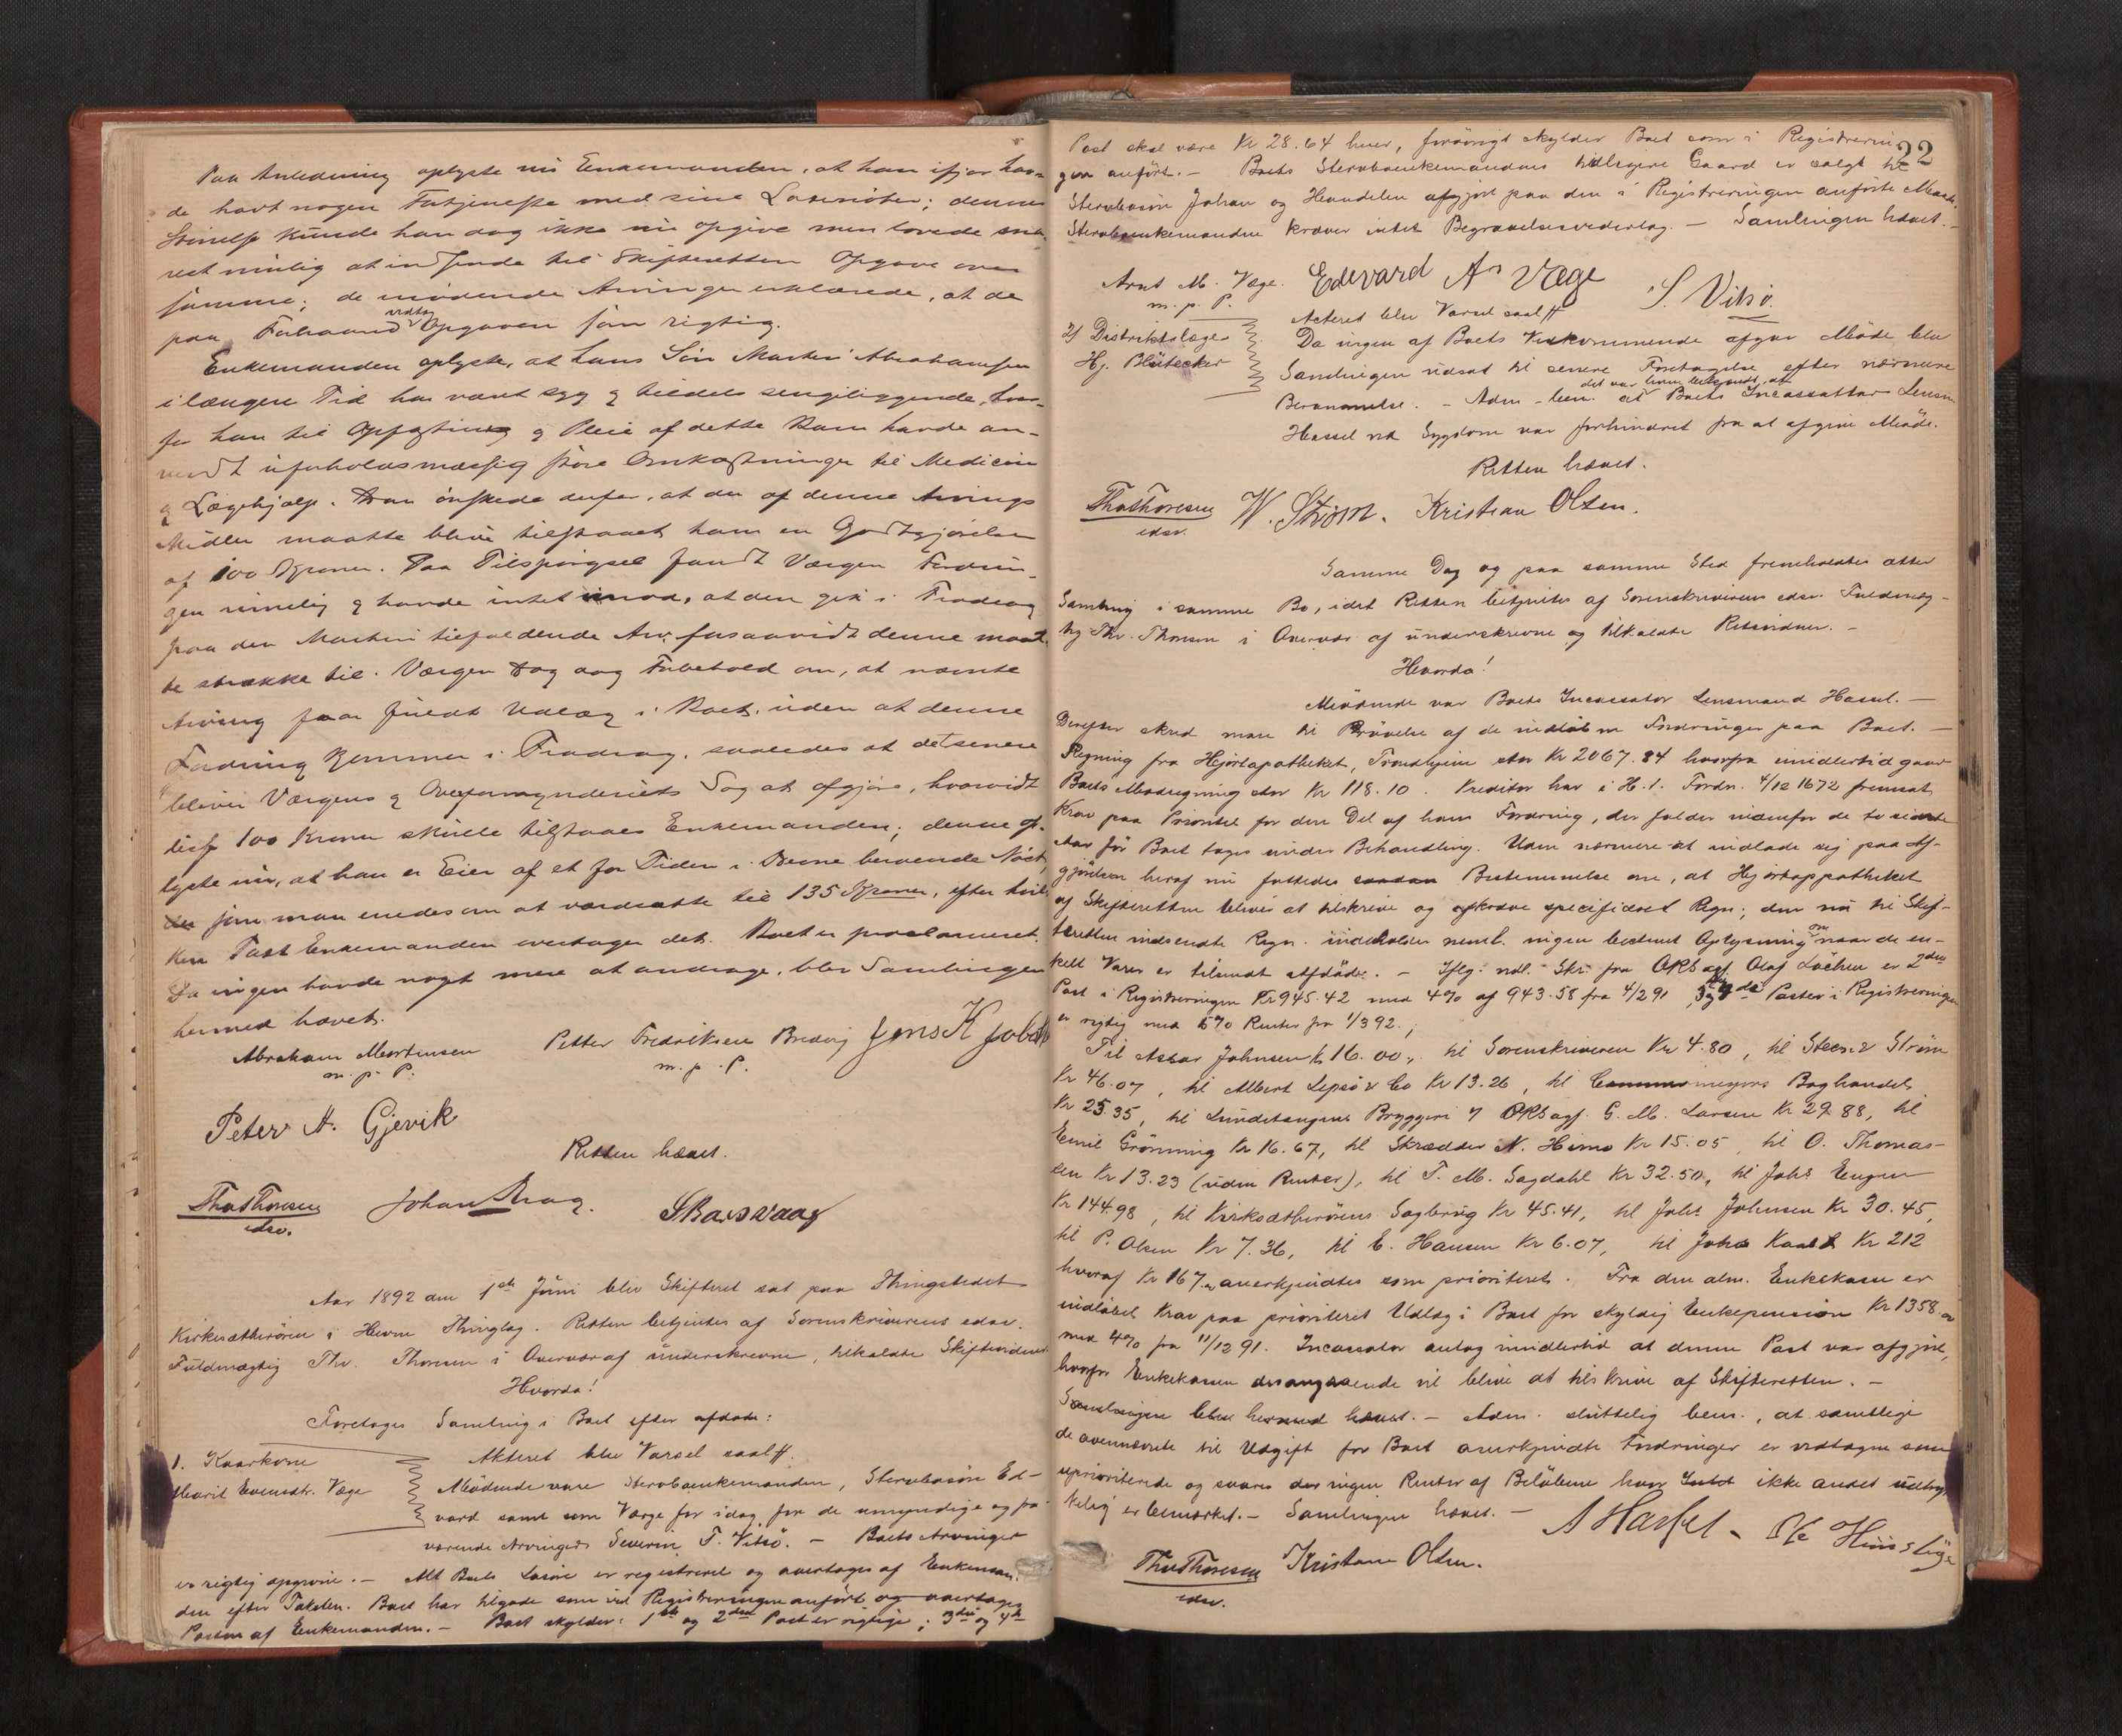 Paa Anledning oplyste nu Enkemanden, at han ifjor hav-
de havt nogen Fortjeneste med sine Laxenøter; dennes
Störrelse kunde han dog ikke nu opgive men lovede sna-
rest mulig at indsende til Skifteretten Opgave over
samme; de mødende Arvinger erklærede, at de
paa Forhaand vedtog Opgaven som rigtig.
Enkemanden oplyste, at hans Søn Martin Abrahamsen
i længere Tid har været syg og tildels sengeliggende, hvor-
for han til Opfostring og Pleie af dette Barn havde an-
vendt uforholdsmæssig store Omkostninger til Medicin
og Lægehjælp. Han ønskede derfor, at der af denne Arvings
Midler maatte blive tilstaaet ham en Godtgjørelse
af 100 Kroner. Paa Tilspørgsel fandt Værgen Fordrin-
gen rimelig og havde intet imod, at den gik i Fradrag
paa den Martin tilfaldende Arv, forsaavidt denne maat-
te strække til. Værgen tog dog Forbehold om, at nævnte
Arving faar fuldt Udlæg i Boet, uden at denne
Fordring kommer i Fradrag, saaledes at det senere
bliver Værgens og Overformynderiets Sag at afgjøre, hvorvidt
disse 100 Kroner skulle tilstaaes Enkemanden; denne op-
lyste nu, at han er Eier af et for Tiden i Berne beroende Nöst,
som man enedes om at værdsætte til 135 Kroner, efter hvil-
ken Taxt Enkemanden overtager det. Boet er proclameret.
Da ingen havde noget mere at andrage, blev Samlingen
hermed hævet.
Abraham Mortensen Petter Fredriksen Bredvig Jens K Jobot
m. p. P. m. p. P.
Peter A. Gjevik
Retten hævet.
Thv Thoresen Johan Skaasvaag
edsv.
Aar 1892 den 1ste Juni blev Skifteret sat paa Thingstedet
Kirksæterören i Hevne Thinglag. Retten betjentes af Sorenskriverens edsv.
Fuldmægtig Thv. Thoresen i Overvær af underskrevne, tilkaldte Skiftevidner.
Hvorda!
Foretoges Samling i Boet efter afdøde:
1. Kaarkone Akteret blev Varsel saal #.
Marit Evensdtr. Væge Mødende vare Stervboenkemanden, Stervbosön Ed-
vard samt som Værge for idag for de umyndige og fra-
værende Arvinger Severin T. Vitsö. — Boets Arvinger
er rigtig opgivne. — Alt Boets Løsøre er registreret og overtages af Enkeman-
den efter Taksten. Boet har tilgode som ved Registreringen anført og overtages
Posten af Enkemanden. — Boet skylder: 1ste og 2den Post er rigtige; 3die og 4de
22
Post skal være Kr 28.64 hver, forøvrigt skylder Boet som i Registrerin-
gen anført. — Boets Stervboenkemandens tidligere Gaard er solgt til
Stervbosön Johan og Handelen afgjort paa den i Registreringen anførte Maade.
Stervboenkemanden kræver intet Begravelsesvederlag. — Samlingen hævet. —
Arnt M. Væge. Edevard As Væge S. Vitsö.
m. p. P. Acteret blev Varsel saal #
2) Distriktslæge Da ingen af Boets Vedkommende afgav Møde, blev
Hj. Blütecker Samlingen udsat til senere Foretagelse efter nærmere
Berammelse. — Adm. bem. det var ham bekjendt, at Boets Incassator Lensm.
Hassel ved Sygdom var forhindret fra at afgive Møde.
Retten hævet.
Thv Thoresen W. Strøm. Kristian Olsen.
edsv.
Samme Dag og paa samme Sted fremholdtes atter
Samling i samme Bo, idet Retten betjentes af Sorenskriverens edsv. Fuldmæg-
tig Thv. Thoresen i Overvær af underskrevne og tilkaldte Retsvidner. —
Hvorda!
Mødende var Boets Incassator Lensmand Hassel. —
Derefter skred man til Prøvelse af de indløbne Fordringer paa Boet. —
Regning fra Hjorteapotheket, Trondhjem stor Kr 2067.84 hvorfra imidlertid gaar
Boets Modregning stor Kr 118.10. Kreditor har i H. t. Fordn. 4/12 1672 fremsat
Krav paa Prioritet for den Del af hans Fordring, der falder indenfor de to sidste
Aar før Boet toges under Behandling. Uden nærmere at indlade sig paa Af-
gjørelsen heraf nu fattedes Bestemmelse om, at Hjorteappotheket
af Skifteretten bliver at tilskrive og afkræve specificeret Regn.; den nu til Skif-
teretten indsendte Regn. indeholder neml. ingen bestemt Oplysning om naar de en-
kelte Varer er tilsendt afdøde. — Iflg. indl. Skr. fra ORSagf. Olaf Löchen er 2den
Post i Registreringen Kr 945.42 med 4% af 943.58 fra 4/2 91, 3die og 4de Poster i Registreringen
er rigtig med 5% Renter fra 1/3 92.;
Til Assar Johnsen Kr 16.00, til Sorenskriveren Kr 4.80, til Steen & Strøm
Kr 46.07, til Albert Lepsö & Co Kr 13.26, til Cammermeyers Boghandel
Kr 25.35, til Lundetangens Bryggeri v ORSagf. G. M. Larsen Kr 29.88, til
Emil Grönning Kr 16.67, til Skrædder N. Himo Kr 15.05, til O. Thomas-
sen Kr 13.23 (uden Renter), til T. M. Sagdahl Kr 32.50, til Johs Engen
Kr 144.98, til Kirksæterörens Sagbrug Kr 45.41, til Johs Johnsen Kr 30.45,
til P. Olsen Kr 7.36, til E. Hansen Kr 6.07, til Johs Kaald Kr 212
hvoraf Kr 167 anerkjendtes som prioriteret. Fra den alm. Enkekasse er
indløbet Krav paa prioriteret Udlæg i Boet for skyldig Enkepension Kr 1358
med 4% fra 11/12 91. Incassator antog imidlertid at denne Post var afgjort,
hvorfor Enkekassen desangaaende vil blive at tilskrive af Skifteretten. —
Samlingen blev hermed hævet. — Adm. sluttelig bem., at samtlige
de ovennævnte til Udgift for Boet anerkjendte Fordringer er vedtagne som
uprioriterede og svares der ingen Renter af Beløbene hvor ikke andet udtryk-
kelig er bemærket. — Samlingen hævet. —
A Hassel
Thv Thoresen Kristian Olsen.
edsv.